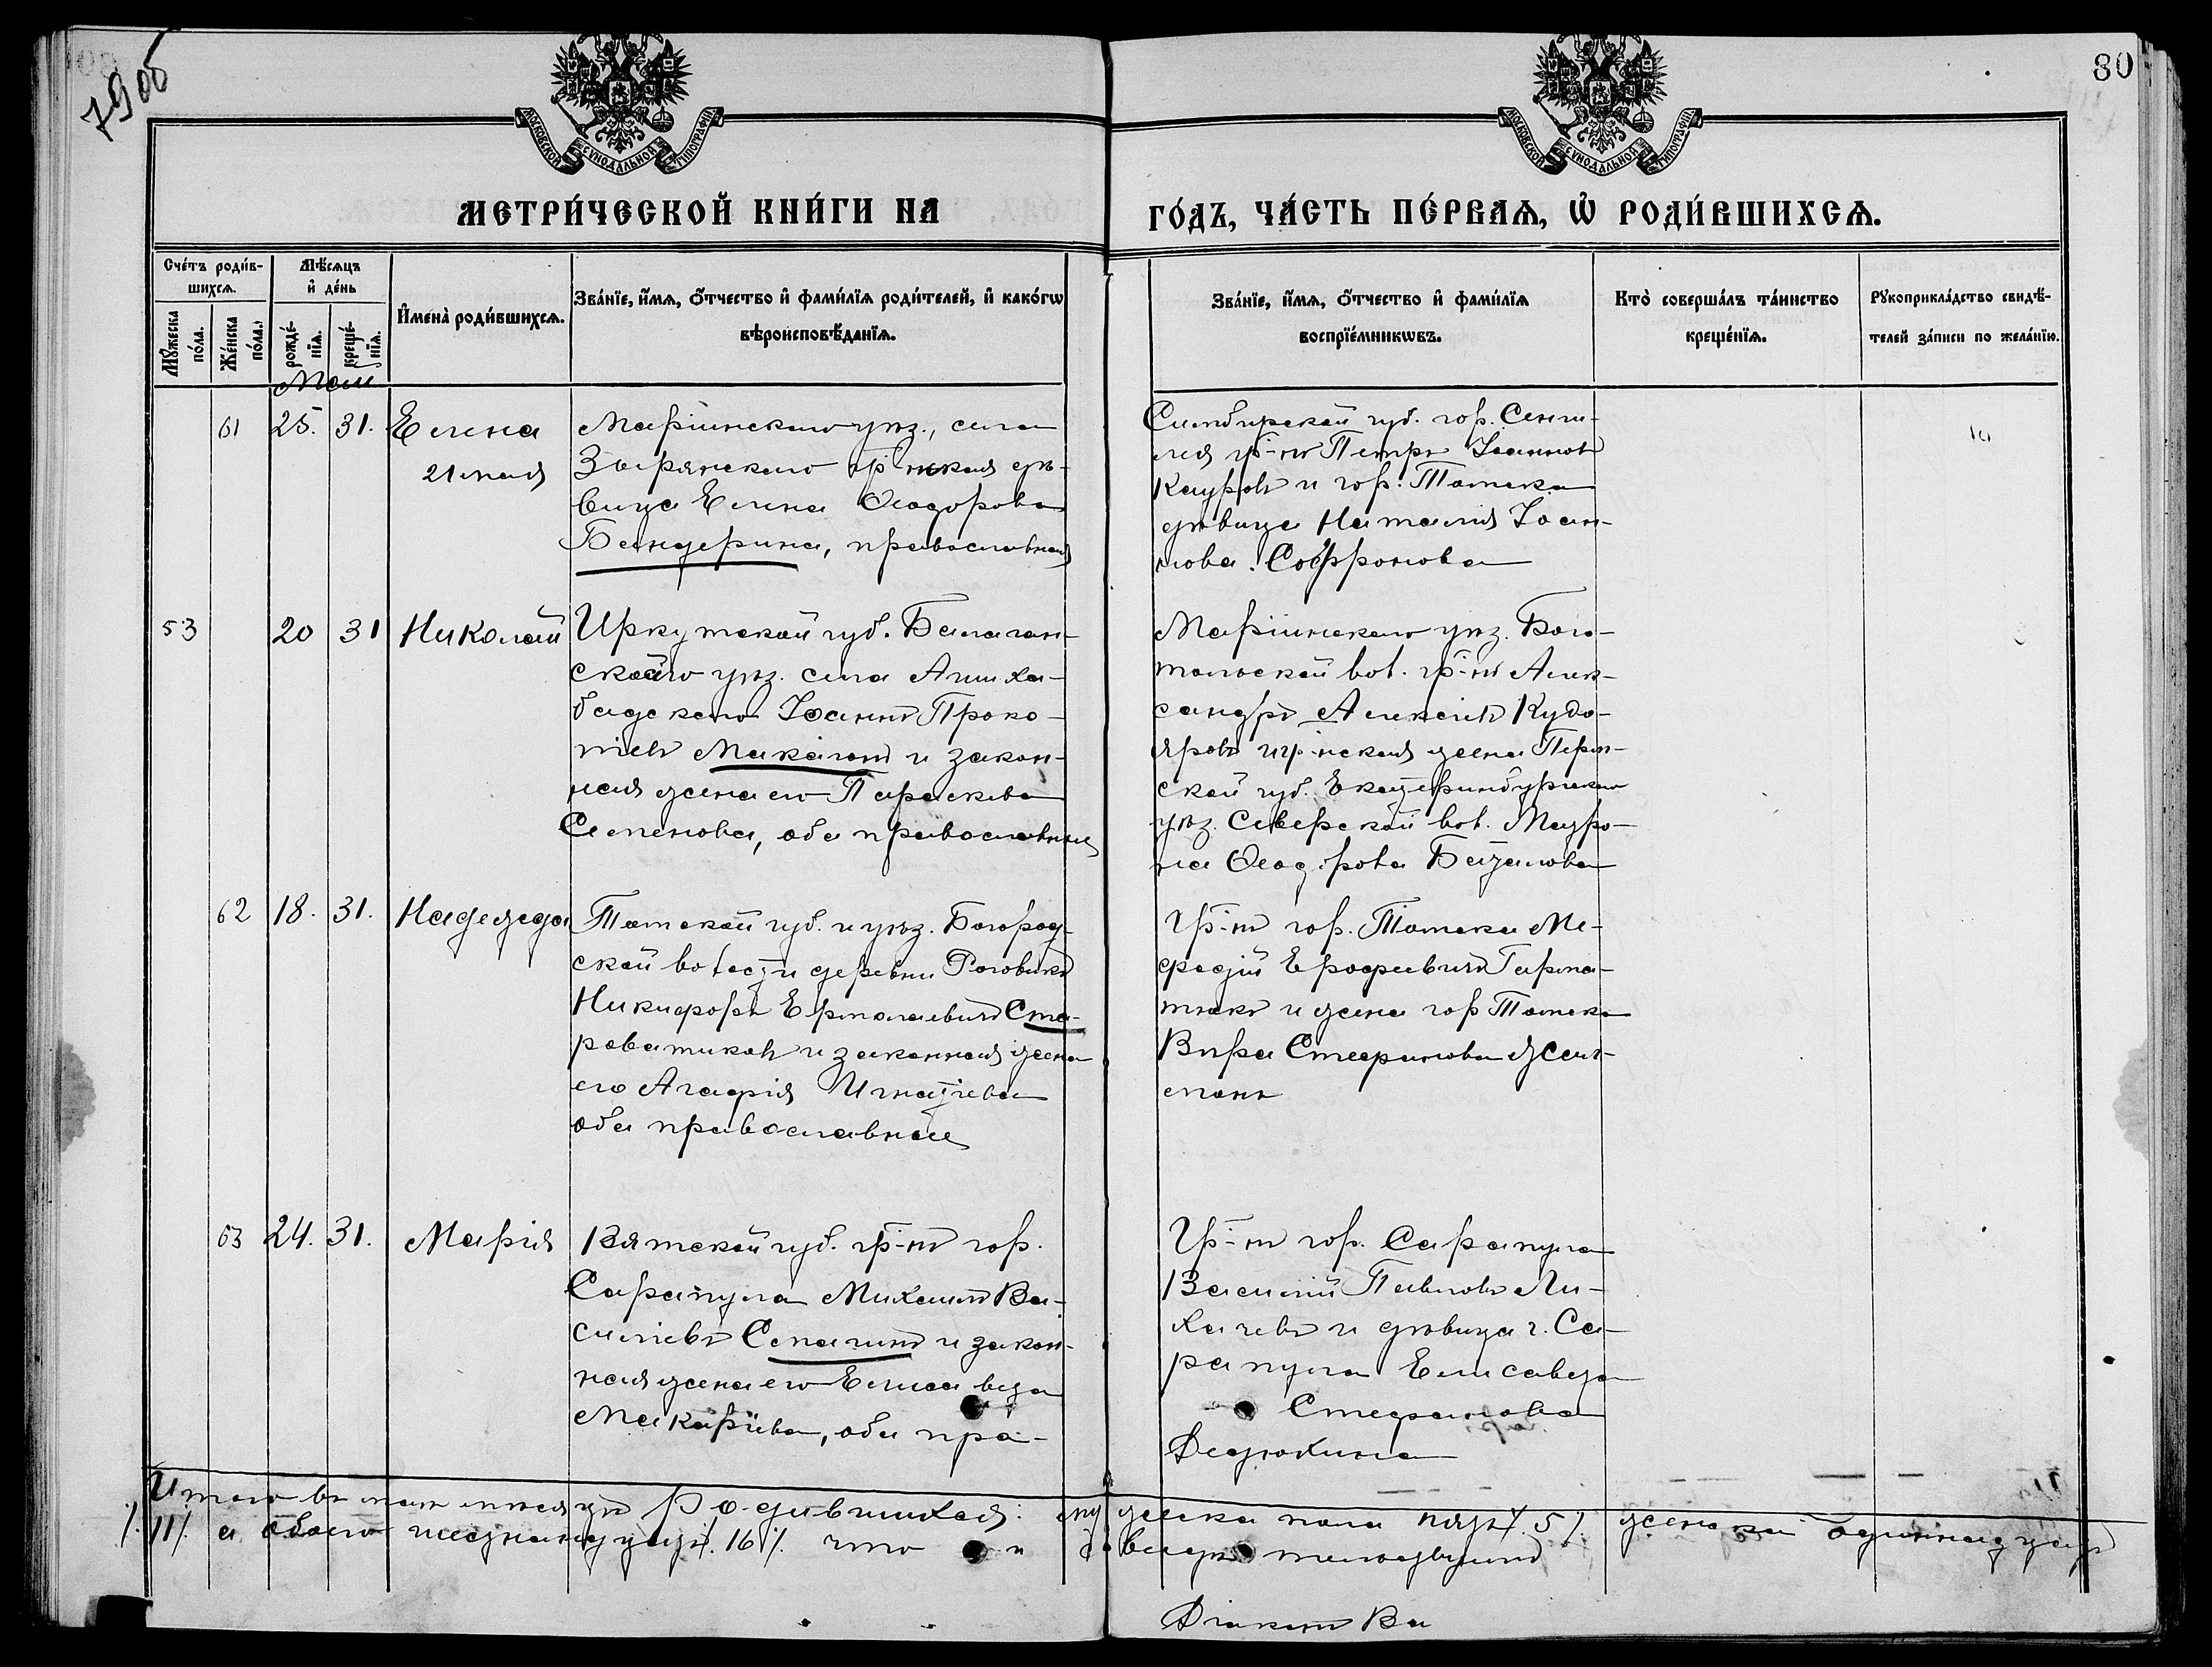 79 об
80
МОСКОВСКОЙ СѴНОДАЛЬНОЙ ТИПОГРАФІИ
МОСКОВСКОЙ СѴНОДАЛЬНОЙ ТИПОГРАФІИ
МЕТРИ́ЧЕСКОЙ КНИ́ГИ НА
ГО́ДЪ, ЧА́СТЬ ПЕ́РВАѦ, Ѡ҆ РОДИ́ВШИХСѦ.
Сче́тъ роди́в-
шихсѧ.
Мꙋ́жеска
по́ла.
Же́нска
по́ла.
Мѣ́сѧцъ
и҆ де́нь
рожде́-
нїѧ.
креще́-
нїѧ.
И҆мена̀ роди́вшихсѧ.
Зва́нїе, и҆́мѧ, ѻ҆́тчество и҆ фами́лїѧ роди́телей, и҆ како́гѡ
вѣроисповѣ́данїѧ.
Зва́нїе, и҆́мѧ, ѻ҆́тчество и҆ фами́лїѧ
воспрїе́мникѡвъ.
Кто̀ соверша́лъ та́инство
креще́нїѧ.
Рꙋкоприкла́дство свидѣ́-
телей за́писи по жела́нїю.
Май
61 25. 31. Елена
21 мая
Маріинскаго уѣз., села
Зырянскаго гр-нская дѣ-
вица Елена Ѳеодорова
Бандерина, православная
Симбирской губ. гор. Сенги-
лея гр-нъ Петръ Іоанновъ
Кауровъ и гор. Томска
дѣвица Наталія Іоан-
нова Софронова
53 20 31 Николай
Иркутской губ. Балаган-
скаго уѣз. села Ашха-
бадскаго Іоаннъ Проко-
піевъ Макагонъ и закон-
ная жена его Параскева
Семенова, оба православные
Маріинскаго уѣз. Бого-
тольской вол. гр-нъ Алек-
сандръ Алексіевъ Кудо-
яровъ и гр-нская жена Перм-
ской губ. Екатеринбургскаго
уѣз. Сиверской вол. Мавро-
на Ѳеодорова Баталова
62 18. 31. Надежда
Томской губ. и уѣз. Богород-
ской волости деревни Роговики
Никифоръ Ермолаевичъ Ста-
роватиковъ и законная жена
его Агафія Игнатіева
оба православные
Гр-нъ гор. Томска Ме-
фодій Ерофеевичъ Гарма-
тюкъ и жена гор Томска
Вѣра Стефанова
63 24. 31. Марія
Вятской губ. гр-нъ гор.
Сарапула Михаилъ Ва-
силіевъ Сепагинъ и закон-
ная жена его Елисавета
Макаріева, оба пра-
Гр-нъ гор. Сарапула
Василій Павловъ Ли-
хачевъ и дѣвица г. Са-
рапула Елисавета
Стефанова
Дедюхина
Итого въ маѣ мѣсяцѣ родившихся: мужеска пола пять /.5/. женска одиннадцать
/.11/. а обоего шестнадцать /.16/. что и свидѣтельствуемъ
Діаконъ Ва